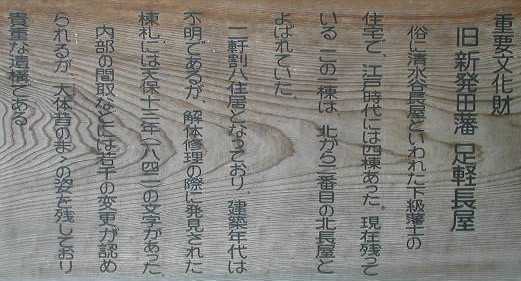 重要文化財
旧新発田藩 足軽長屋
俗に清水谷長屋といわれた下級藩士の
住宅で、江戸時代には四棟あった。現在残って
いる、この一棟は、北から三番目の北長屋と
よばれていた。
二軒割八住居となっており、建築年代は
不明であるが、解体修理の際に発見された
棟札には天保十三年(一八四二)の文字があった。
内部の間取などには若干の変更が認め
られるが、大体昔のまゝの姿を残しており
貴重な遺構である